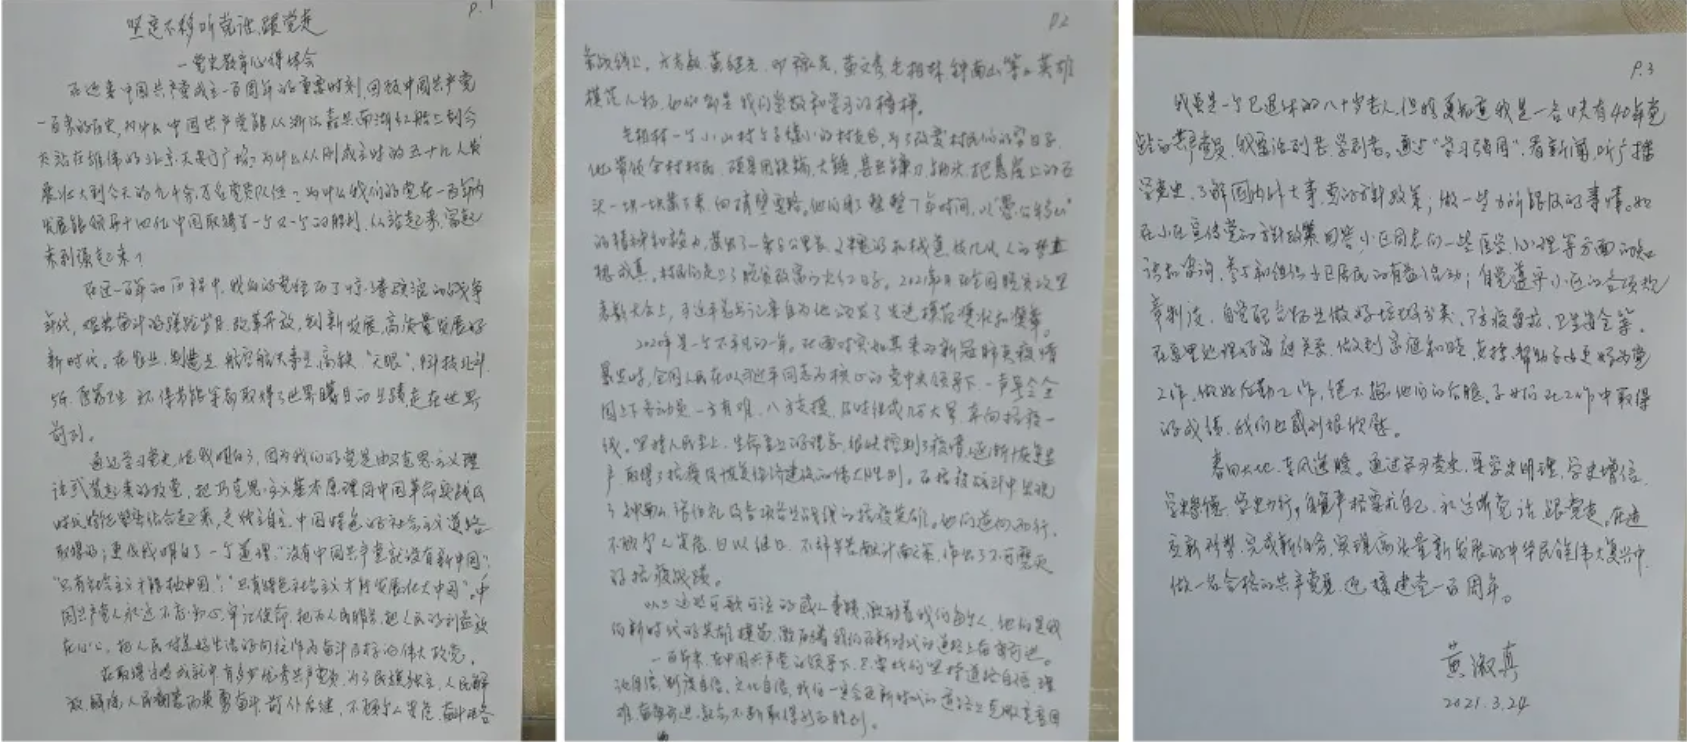 P.1
坚定不移听党话、跟党走
—党史教育心得体会
在迎来中国共产党成立一百周年的重要时刻,回顾中国共产党
一百年的历史,为什么中国共产党能从浙江嘉兴南湖红船上到今
天站在雄伟的北京天安门广场?为什么从刚成立时的五十几人发
展壮大到今天的九千多万名党员队伍?为什么我们的党在一百年内
发展能领导十四亿中国取得了一个又一个的胜利,从站起来、富起
来到强起来?
在这一百年的历程中,我们的党经历了惊涛骇浪的战争
年代,艰苦奋斗的建设岁月,改革开放,创新发展,高质量发展的
新时代。在农业、制造业、航空航天事业、高铁、“天眼”、
前列。
通过学习党史,使我明白了,因为我们的党是由马克思主义理
论武装起来的政党,把马克思主义基本原理同中国革命实践及
取得的;更使我明白了一个道理,“没有中国共产党就没有新中国”,
“只有社会主义才能救中国”,“只有特色社会主义才能发展壮大中国”。中
国共产党人永远不忘初心,牢记使命,把为人民服务,把人民的利益放
在心上,把人民对美好生活的向往作为奋斗目标的伟大政党。
在取得这些成就中有多少优秀共产党员,为了民族独立、人民解
P2
条战线上,方志敏、黄继光、邓稼先、黄文秀、毛相林、钟南山等。英雄
模范人物,他们都是我们崇敬和学习的榜样。
毛相林一个小山村个子矮小的村支书,为了改变村民们的穷日子,
头一块一块凿下来,向峭壁要路。他们用了整整7年时间,以“愚公移山”
想成真,村民们走上了脱贫致富的大好日子。2021年2月在全国脱贫攻坚
表彰大会上,习近平总书记亲自为他颁发了先进模范奖状和奖章。
2020年是一个不平凡的一年。在面对突如其来的新冠肺炎疫情
暴发时,全国人民在以习近平同志为核心的党中央领导下,一声号令全
国上下齐动员,一方有难,八方支援,
线。坚持人民至上、生命至上的理念,很快控制了疫情,逐渐恢复生
产,取得了抗疫及恢复经济建设的伟大胜利。在抗疫战斗中出现
了钟南山、张伯礼
不顾个人安危,日以继日,不辞辛苦献计献策,作出了不可磨灭
的抗疫战绩。
以上这些可歌可泣的感人事迹,激励着我们每个人,他们是我
们新时代的英雄模范,激励着我们在新时代的道路上奋勇前进。
一百年来,在中国共产党的领导下,只要我们坚持道路自信、理
论自信、制度自信、文化自信,我们一定会在新时代的道路上克服重重困
难,奋勇前进,就会不断取得新的胜利。
P.3
我虽是一个已退休的八十岁老人,但我更知道我是一名快有40年党
龄的共产党员,我要活到老学到老。通过“学习强国”、看新闻、听广播
学党史、了解国内外大事,党的方针政策;做一些力所能及的事情。如
在小区宣传党的方针政策,回答小区同志们一些医学、心理等方面的知
识和咨询,参与和组织小区居民的有益活动;自觉遵守小区的各项规
章制度,自觉配合物业做好垃圾分类、
在家里处理好家庭关系,做到家庭和睦,支持、帮助子女更好为党
工作,做好后勤工作,绝不拖他们的后腿。子女们在工作中取得
的成绩,我们也感到很欣慰。
春回大地,东风送暖。通过学习党史,要学史明理,学史增信,
学史崇德,学史力行。自觉严格要求自己,永远听党话、跟党走,在适
应新形势,完成新任务,实现高质量新发展的中华民族伟大复兴中,
做一名合格的共产党员,迎接建党一百周年。
黄淑真
2021.3.24